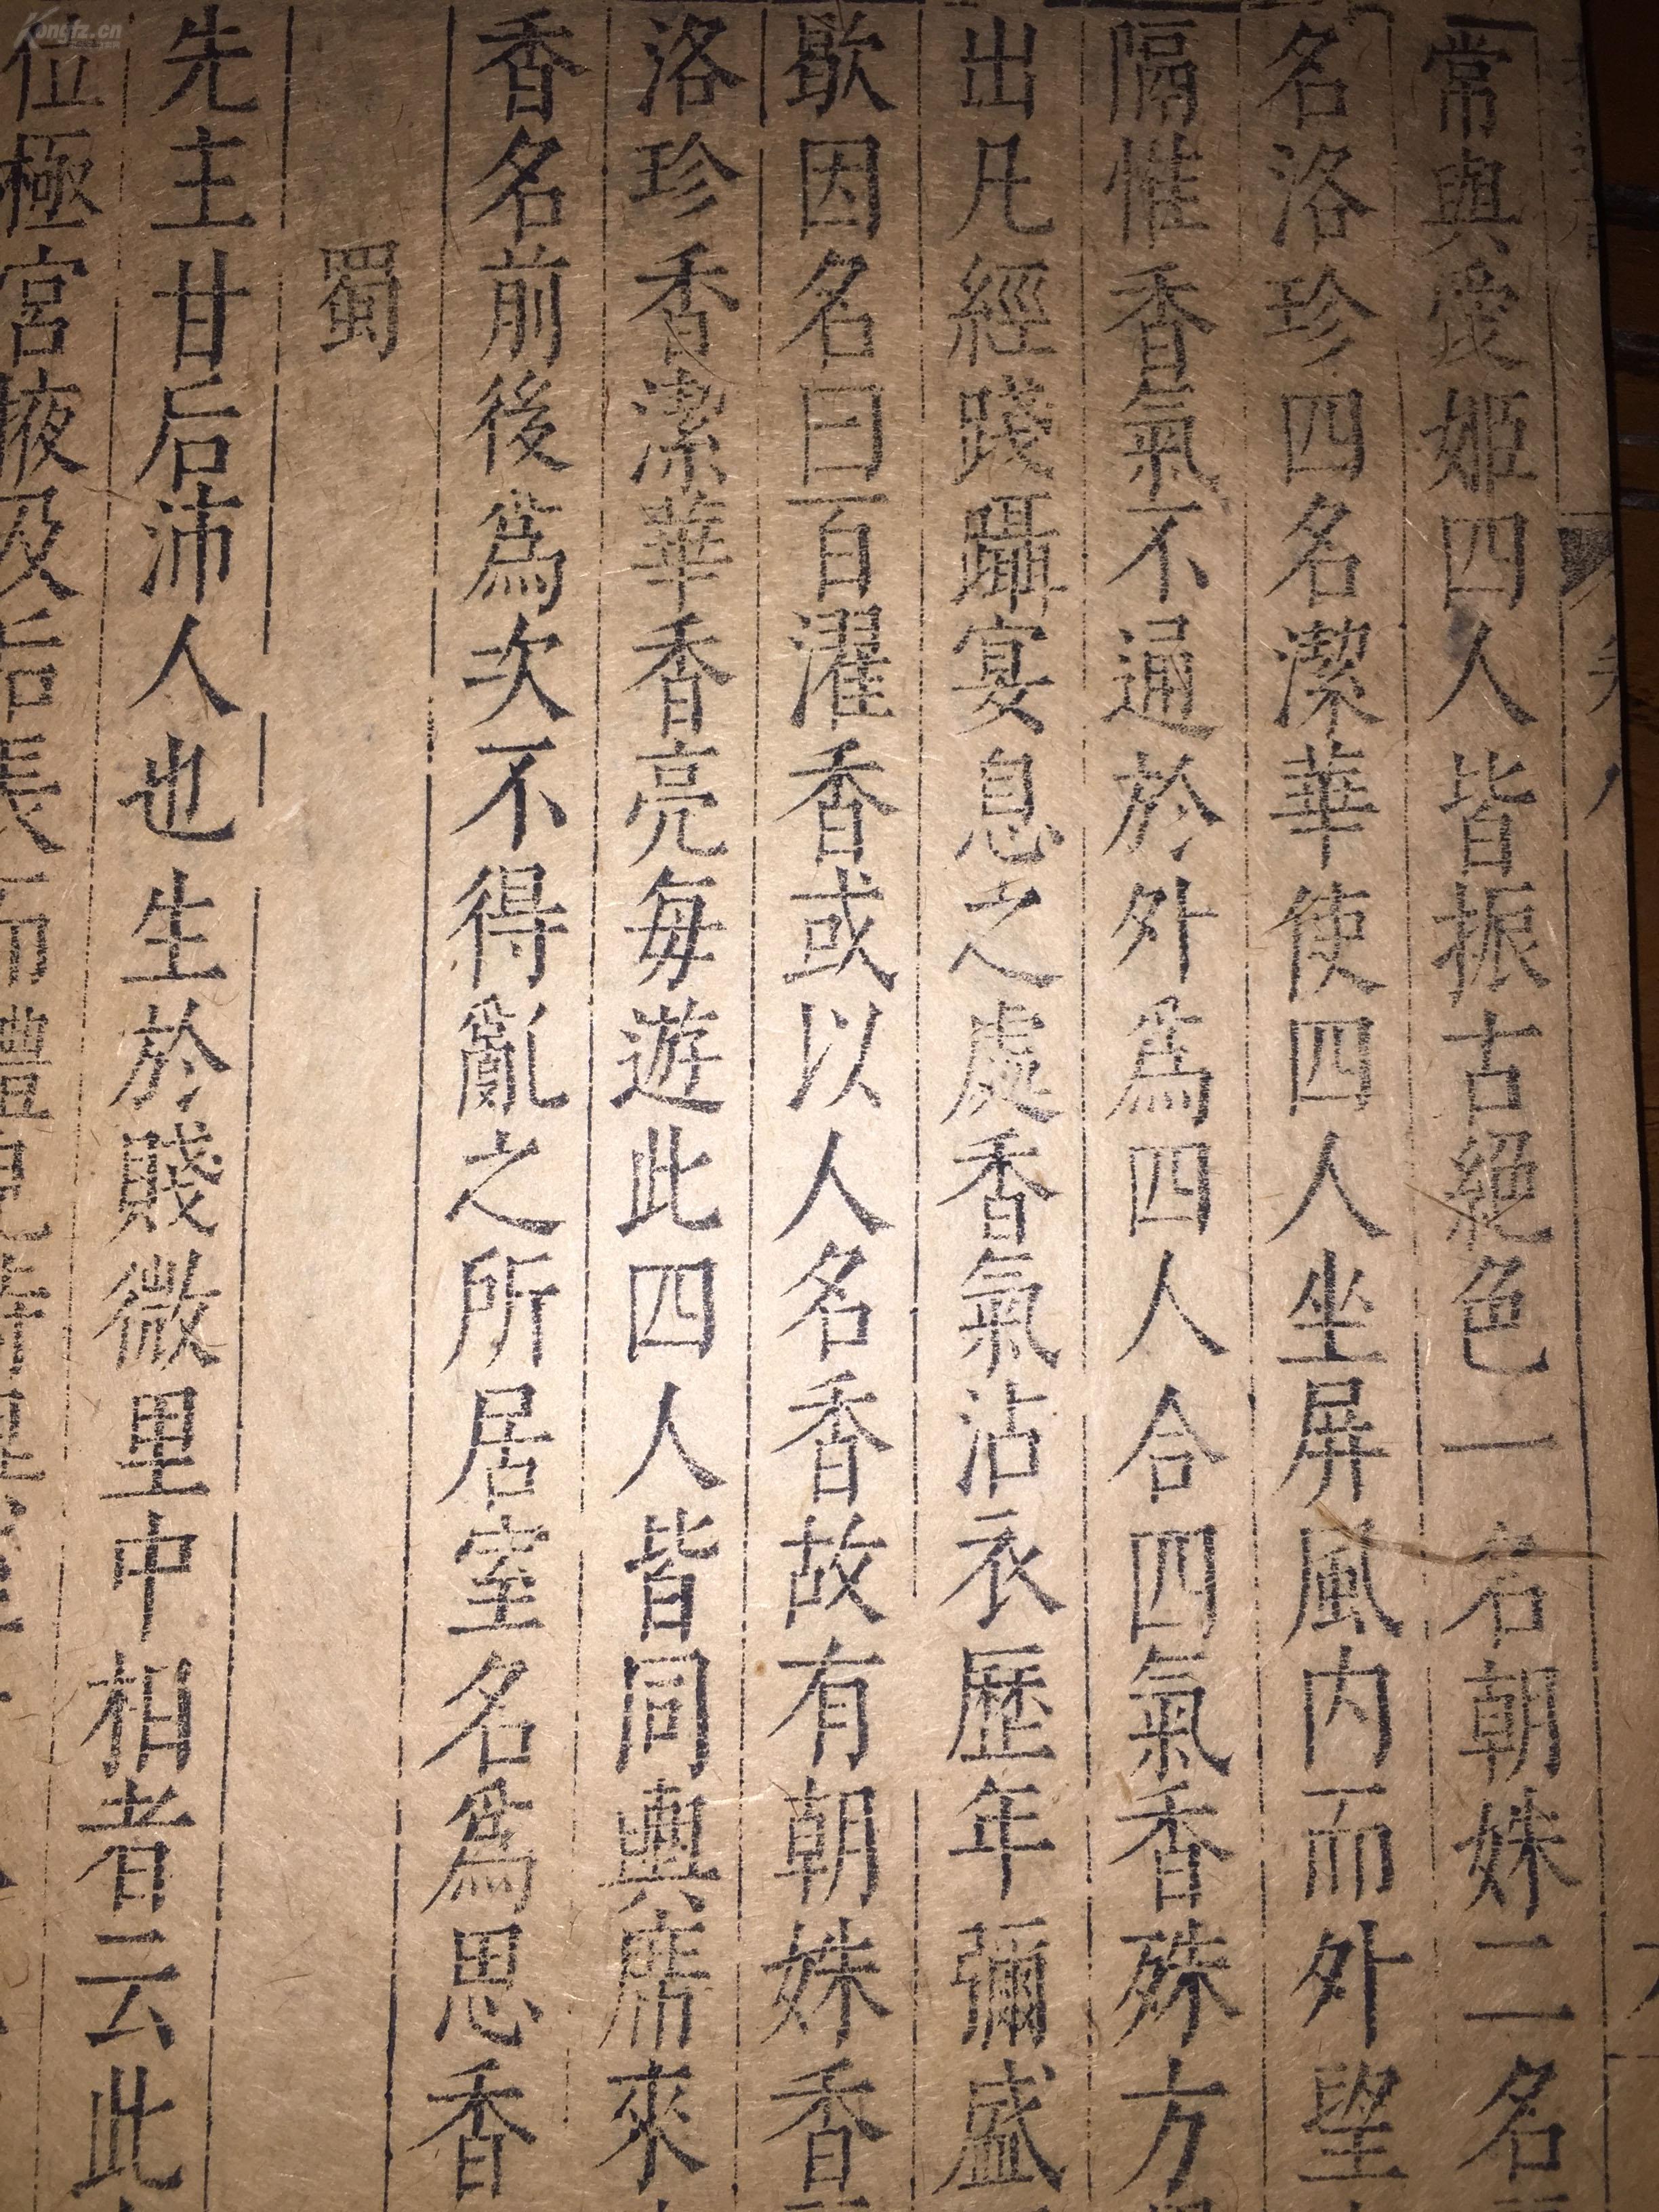 常與愛姬四人皆振古絕色一名朝姝二名
名洛珍四名潔華使四人坐屏風內而外望
隔惟香氣不通於外爲四人合四氣香殊方
出凡經踐躡宴息之處香氣沾衣歷年彌盛
歇因名曰百濯香或以人名香故有朝姝香
洛珍香潔華香亮每遊此四人皆同輿席來
香名前後爲次不得亂之所居室名爲思香
蜀
先主甘后沛人也生於賤微里中相者云此
位極宮液及后長而體貌特
Kongfz.cn